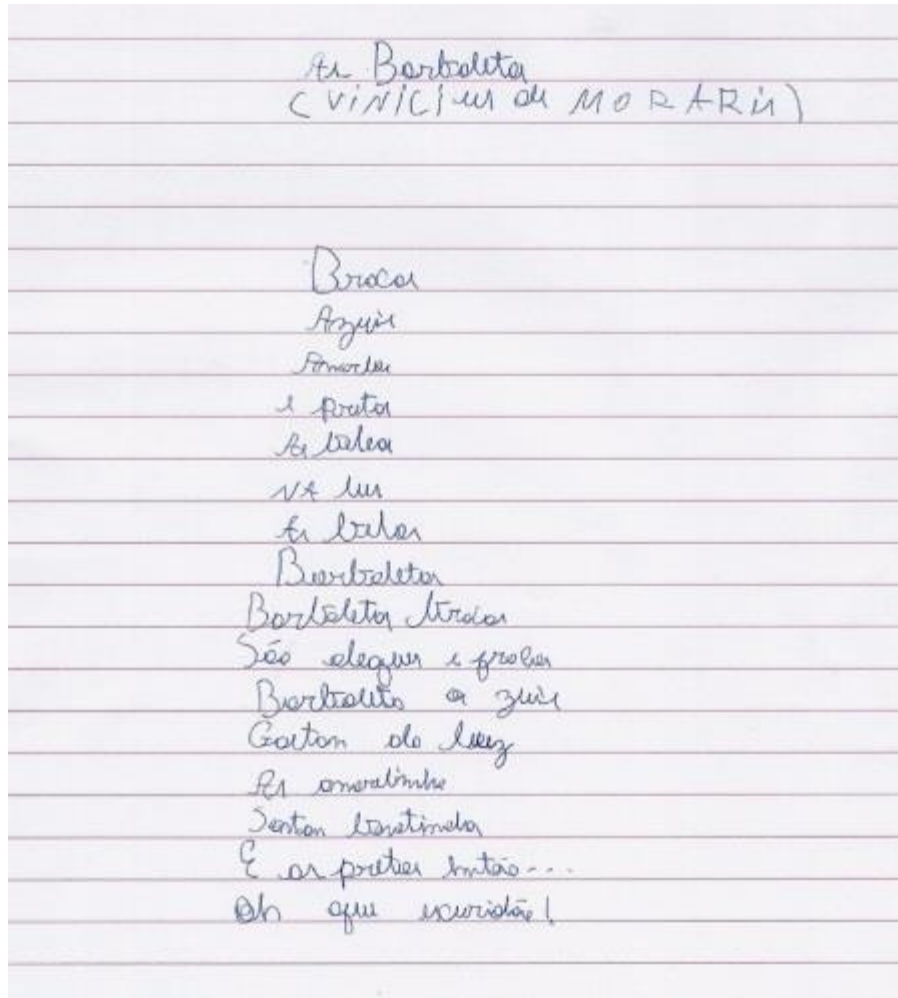 As Borboleta
(VINICIus de MORARis)
Brocas
Azuis
Amorlas
e preta
As balea
NA lus
As belas
Buorboletas
Borboletas brocas
São alegues e frocas
Borboleta a zuis
Gostan do luz
As amoralinha
Sontan bonitinda
E as pretas então...
Oh que escuridão!